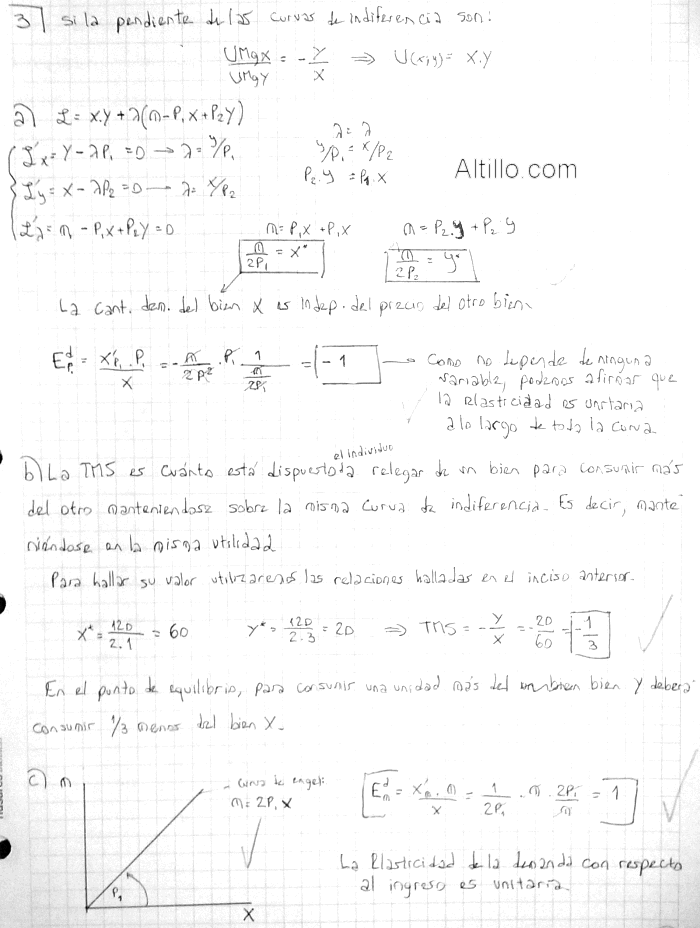 3) si la pendiente de las curvas de indiferencia son:
UMgx/UMgy = -Y/X ⇒ U(x,y)= X.Y
a) L = X.Y + λ(m-P1X+P2Y)
L'x = Y - λP1 = 0 → λ = y/P1
L'y = X - λP2 = 0 → λ = x/P2
L'λ = m - P1X+P2Y = 0
λ = λ
y/P1 = x/P2
P2.y = P1.x
Altillo.com
m = P1X + P1X
m/2P1 = X*
m = P2.y + P2 y
m/2P2 = y*
La cant. dem. del bien X es indep. del precio del otro bien.
E^d_P1 = X'P1 . P1/X = - m/2P1² . P1 . 1/(m/2P1) = -1 → Como no depende de ninguna
variable, podemos afirmar que
la elasticidad es unitaria
a lo largo de toda la curva.
el individuo
b) La TMS es cuánto está dispuesto a relegar de un bien para consumir más
del otro manteniendose sobre la misma curva de indiferencia. Es decir, mante
niéndose en la misma utilidad
Para hallar su valor utilizaremos las relaciones halladas en el inciso anterior.
X* = 120/2.1 = 60 Y* = 120/2.3 = 20 ⇒ TMS = -Y/X = -20/60 = -1/3
En el punto de equilibrio, para consumir una unidad más del bien Y deberá
consumir 1/3 menos del bien X.
c) m
- curva de engel:
m = 2P1 X
P1
X
E^d_m = X'm . m/X = 1/2P1 . m . 2P1/m = 1
La elasticidad de la demanda con respecto
al ingreso es unitaria.